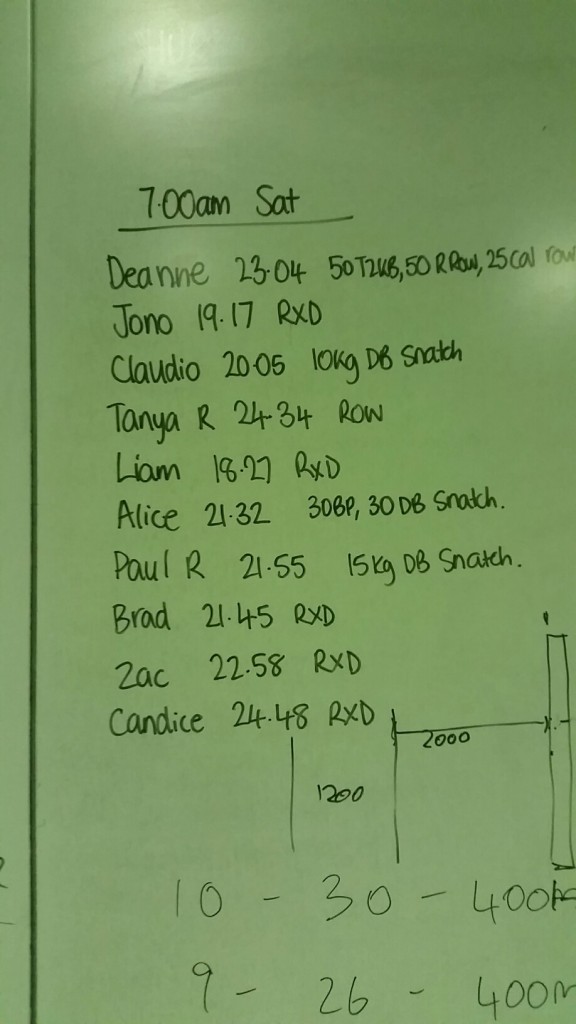 7.00am Sat
Deanne 23.04 50 T2KB, 50 R Row, 25 Cal row
Jono 19.17 RXD
Claudio 20.05 10kg DB Snatch
Tanya R 24.34 ROW
Liam 18.27 RXD
Alice 21.32 30BP, 30 DB Snatch.
Paul R 21.55 15kg DB Snatch.
Brad 21.45 RXD
Zac 22.58 RXD
Candice 24.48 RXD
2000
1200
10 - 30 - 400m
9 - 26 - 400m